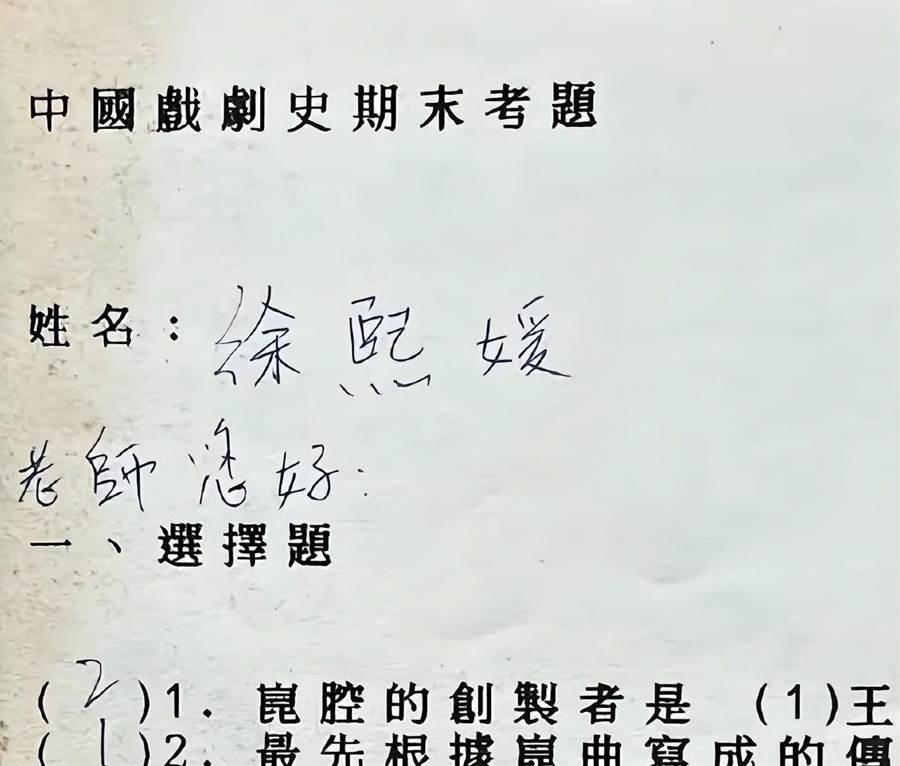 中國戲劇史期末考題
姓名：徐熙媛
老師您好.
一、選擇題
(2)1. 崑腔的創製者是 (1)王
(1)2. 最先根據崑曲寫成的傳